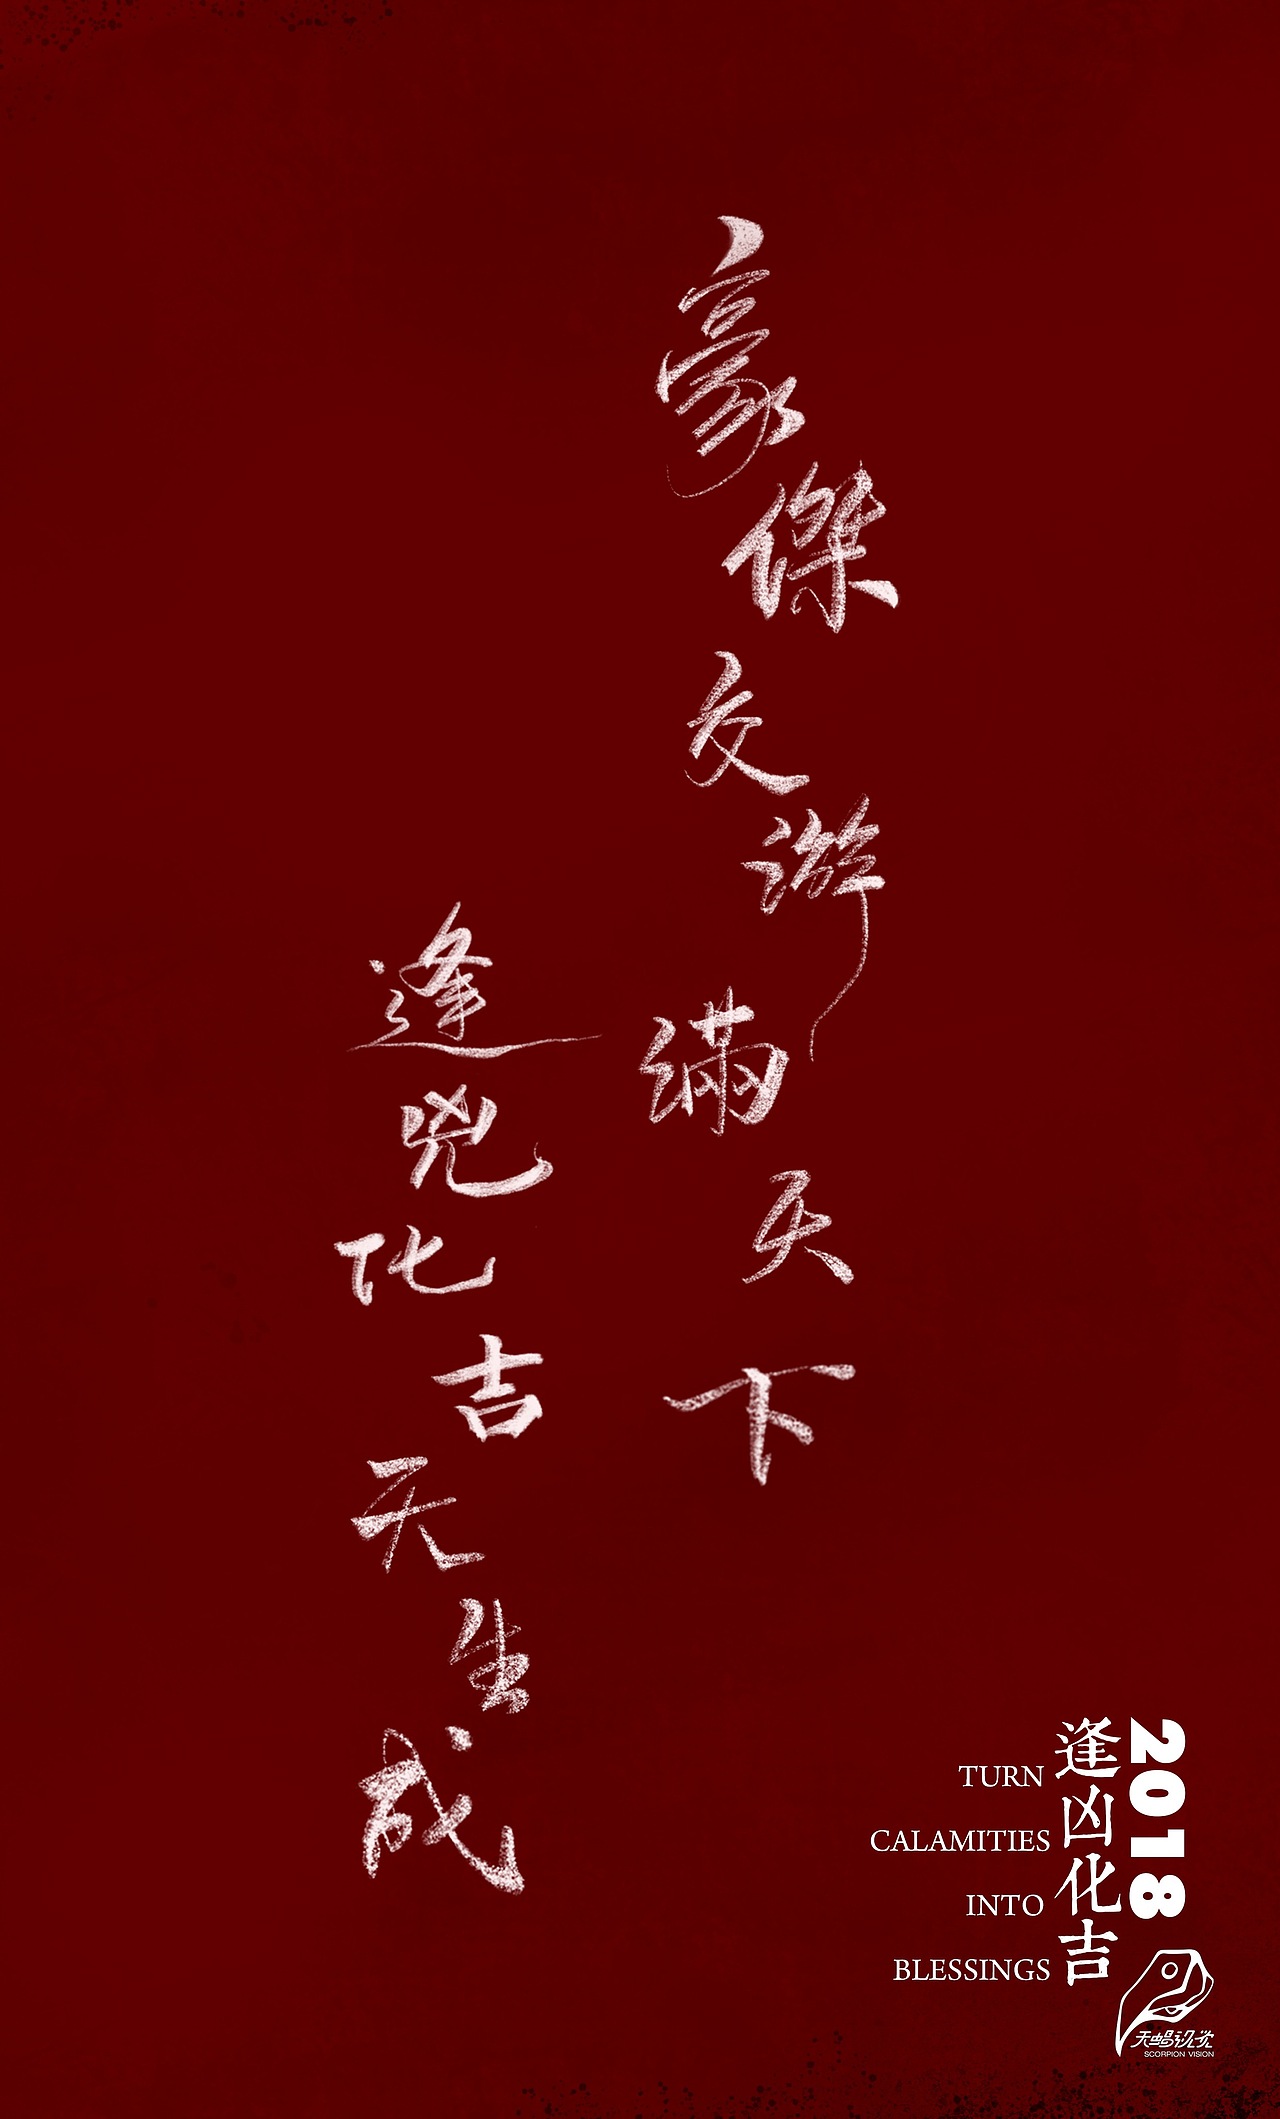 豪傑交游滿天下
逢兇化吉天生成
2018
逢凶化吉
TURN
CALAMITIES
INTO
BLESSINGS
天蝎视觉
SCORPION VISION